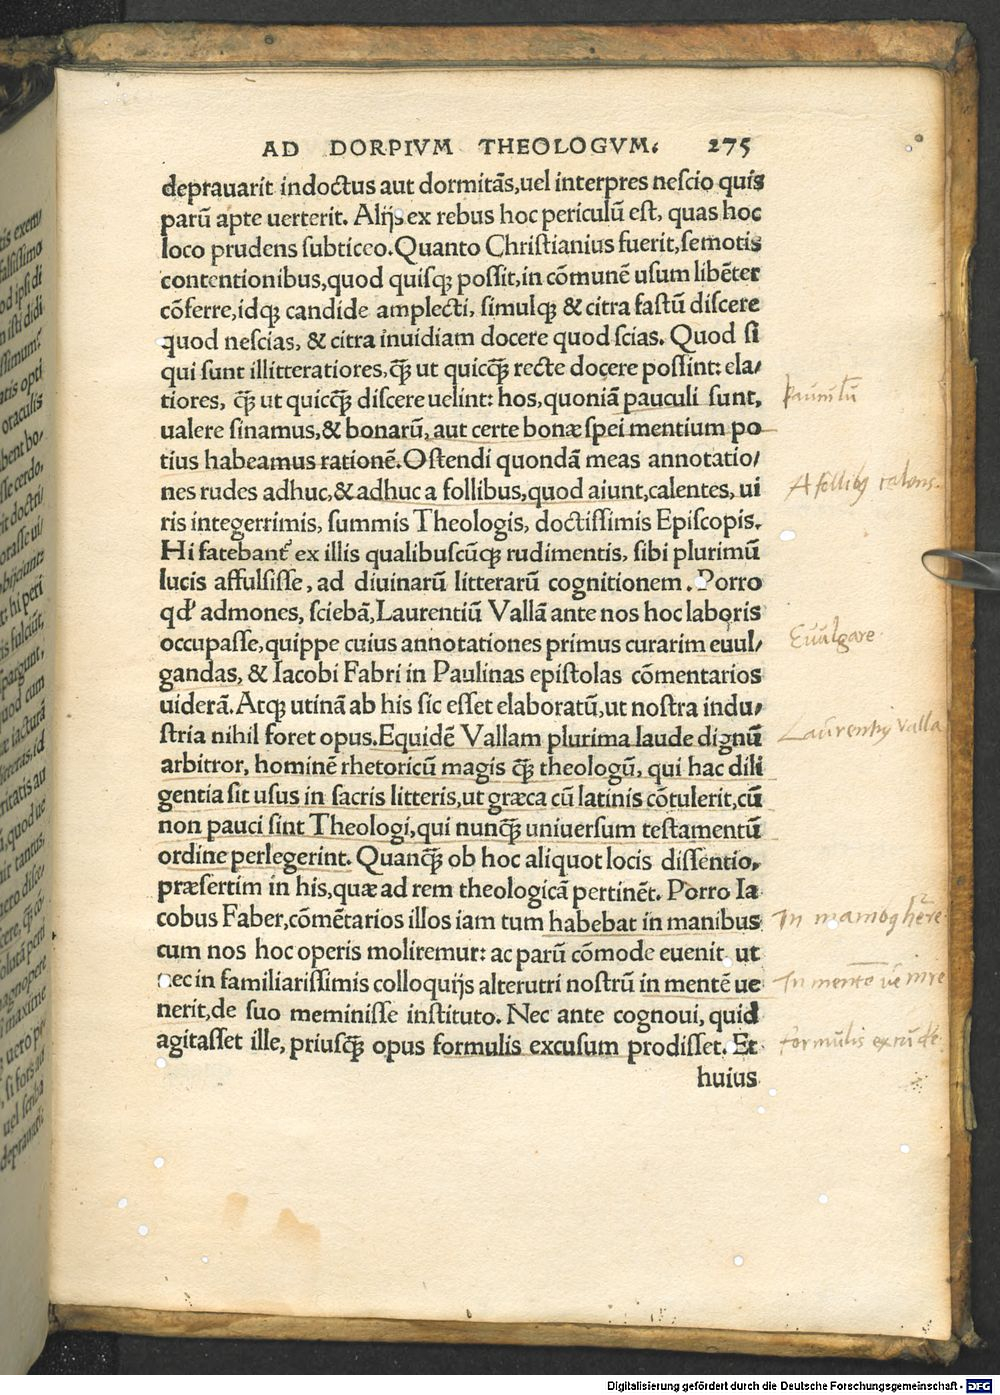 AD DORPIVM THEOLOGVM. 275
deprauarit indoctus aut dormitãs,uel interpres nescio quis
parũ apte uerterit. Alijs ex rebus hoc periculũ est, quas hoc
loco prudens subticeo.Quanto Christianius fuerit,semotis
contentionibus,quod quisqꝫ possit,in cõmunẽ usum libẽter
cõferre,idqꝫ candide amplecti, simulqꝫ & citra fastũ discere
quod nescias, & citra inuidiam docere quod scias. Quod si
qui sunt illitteratiores,q̃ꝫ ut quicq̃ꝫ recte docere possint: ela/
tiores, q̃ꝫ ut quicq̃ꝫ discere uelint: hos,quoniã pauculi sunt,
ualere sinamus,& bonarũ, aut certe bonæ spei mentium po
tius habeamus rationẽ.Ostendi quondã meas annotatio/
nes rudes adhuc,& adhuc a follibus,quod aiunt,calentes, ui
ris integerrimis, summis Theologis, doctissimis Episcopis.
Hi fatebant᷑ ex illis qualibuscũqꝫ rudimentis, sibi plurimũ
lucis affulsisse, ad diuinarũ litterarũ cognitionem. Porro
qđ admones, sciebã,Laurentiũ Vallã ante nos hoc laboris
occupasse,quippe cuius annotationes primus curarim euul/
gandas, & Iacobi Fabri in Paulinas epistolas cõmentarios
uiderã.Atqꝫ utinã ab his sic esset elaboratũ,ut nostra indu/
stria nihil foret opus.Equidẽ Vallam plurima laude dignũ
arbitror, hominẽ rhetoricũ magis q̃ꝫ theologũ, qui hac dili
gentia sit usus in sacris litteris,ut græca cũ latinis cõtulerit,cũ
non pauci sint Theologi,qui nunq̃ꝫ uniuersum testamentũ
ordine perlegerint. Quanq̃ꝫ ob hoc aliquot locis dissentio,
præsertim in his,quæ ad rem theologicã pertinẽt. Porro Ia
cobus Faber,cõmẽtarios illos iam tum habebat in manibus
cum nos hoc operis moliremur: ac parũ cõmode euenit, ut
nec in familiarissimis colloquijs alterutri nostrũ in mentẽ ue
nerit,de suo meminisse instituto. Nec ante cognoui, quid
agitasset ille, priusq̃ꝫ opus formulis excusum prodisset. Et
huius
A follibꝫ calens.
Euulgare
Laurentiꝫ Valla
In manibꝫ hẽre
In mentẽ uẽire
formulis
Digitalisierung gefördert durch die Deutsche Forschungsgemeinschaft - DFG